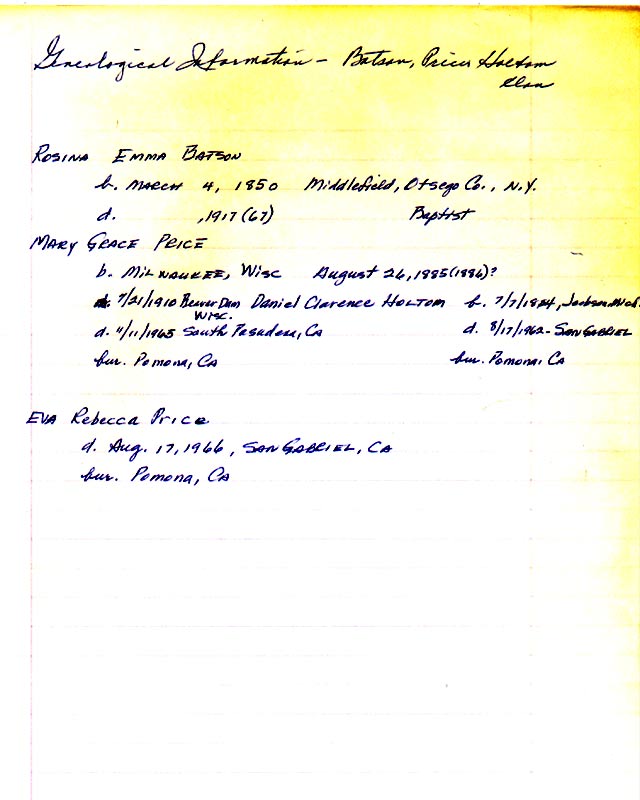 Geneological Information - Batson, Price Holtom
Clan
ROSINA EMMA BATSON
b. MARCH 4, 1850 Middlefield, Otsego Co., N.Y.
d. ,1917 (67) Baptist
MARY GRACE PRICE
b. MILWAUKEE, WISC August 26, 1885 (1886)?
7/21/1910 Beaver Dam Daniel Clarence HOLTOM b. 7/7/1884, Jackson, Mich.
WISC.
d. 11/11/1965 South Pasadena, CA d. 8/17/1962 - SAN GABRIEL
bur. Pomona, CA bur. Pomona, CA
EVA Rebecca Price
d. Aug. 17, 1966, SAN GABRIEL, CA
bur. Pomona, CA